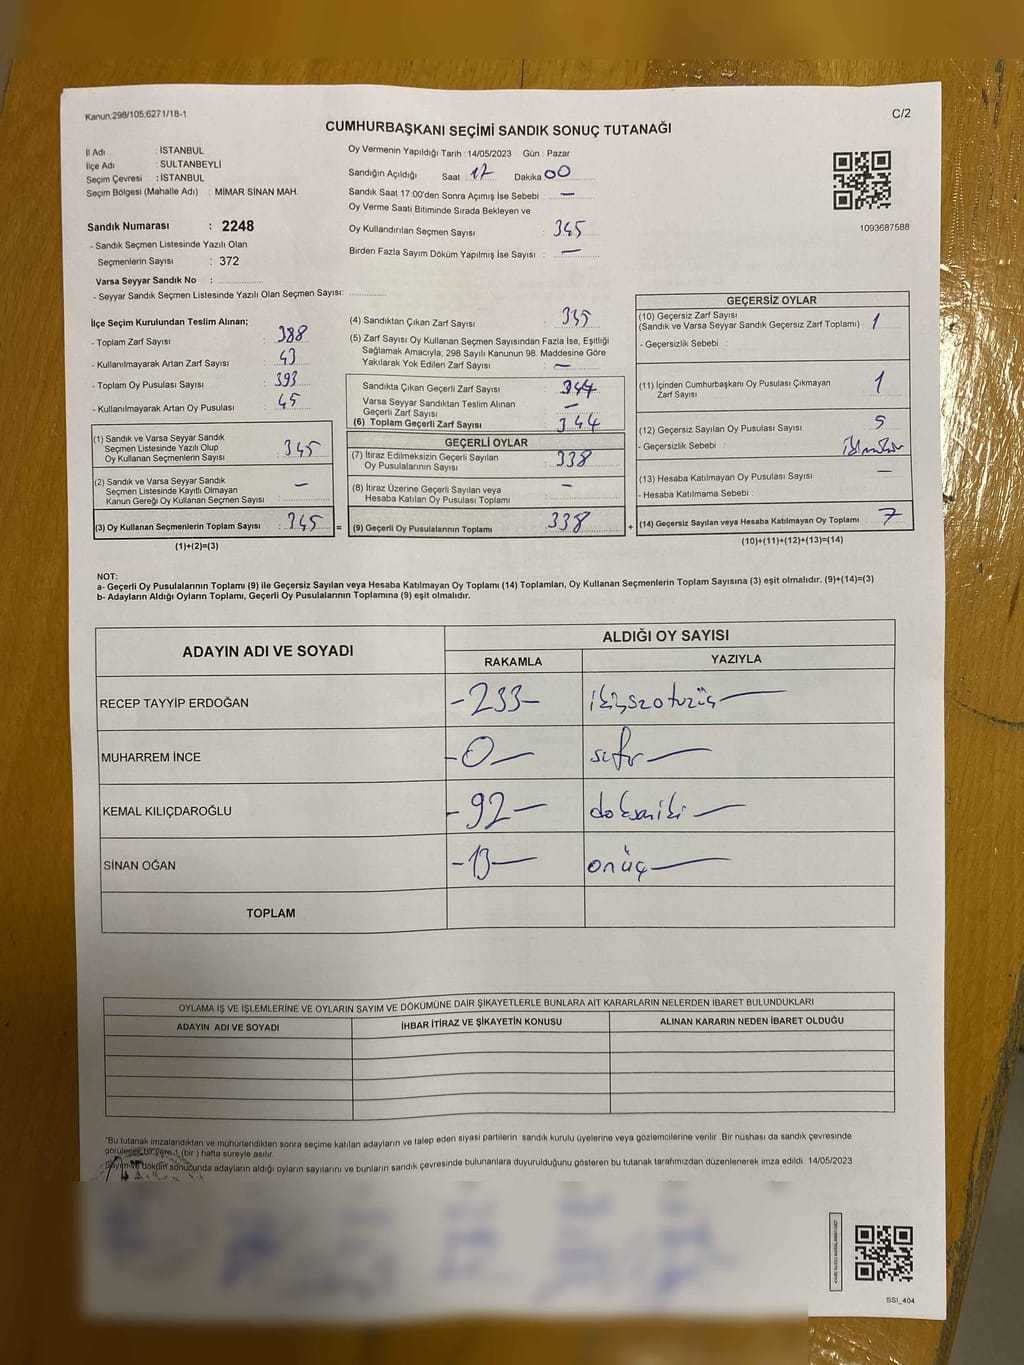 Kanun:298/105;6271/18-1
C/2
CUMHURBAŞKANI SEÇİMİ SANDIK SONUÇ TUTANAĞI
İl Adı : İSTANBUL
İlçe Adı : SULTANBEYLİ
Seçim Çevresi : İSTANBUL
Seçim Bölgesi (Mahalle Adı) : MİMAR SİNAN MAH.
Sandık Numarası : 2248
- Sandık Seçmen Listesinde Yazılı Olan
Seçmenlerin Sayısı : 372
Varsa Seyyar Sandık No :
- Seyyar Sandık Seçmen Listesinde Yazılı Olan Seçmen Sayısı:
Oy Vermenin Yapıldığı Tarih : 14/05/2023 Gün : Pazar
Sandığın Açıldığı Saat : 17 Dakika 00
Sandık Saat 17:00'den Sonra Açımış İse Sebebi : —
Oy Verme Saati Bitiminde Sırada Bekleyen ve
Oy Kullandırılan Seçmen Sayısı : 345
Birden Fazla Sayım Döküm Yapılmış İse Sayısı : —
1093687588
İlçe Seçim Kurulundan Teslim Alınan;
- Toplam Zarf Sayısı : 388
- Kullanılmayarak Artan Zarf Sayısı : 43
- Toplam Oy Pusulası Sayısı : 393
- Kullanılmayarak Artan Oy Pusulası : 45
(1) Sandık ve Varsa Seyyar Sandık
Seçmen Listesinde Yazılı Olup
Oy Kullanan Seçmenlerin Sayısı : 345
(2) Sandık ve Varsa Seyyar Sandık
Seçmen Listesinde Kayıtlı Olmayan
Kanun Gereği Oy Kullanan Seçmen Sayısı : —
(3) Oy Kullanan Seçmenlerin Toplam Sayısı : 345 =
(1)+(2)=(3)
(4) Sandıktan Çıkan Zarf Sayısı : 335
(5) Zarf Sayısı Oy Kullanan Seçmen Sayısından Fazla İse, Eşitliği
Sağlamak Amacıyla; 298 Sayılı Kanunun 98. Maddesine Göre
Yakılarak Yok Edilen Zarf Sayısı : —
Sandıkta Çıkan Geçerli Zarf Sayısı : 344
Varsa Seyyar Sandıktan Teslim Alınan
Geçerli Zarf Sayısı : —
(6) Toplam Geçerli Zarf Sayısı : 344
GEÇERLİ OYLAR
(7) İtiraz Edilmeksizin Geçerli Sayılan
Oy Pusulalarının Sayısı : 338
(8) İtiraz Üzerine Geçerli Sayılan veya
Hesaba Katılan Oy Pusulası Toplamı : —
(9) Geçerli Oy Pusulalarının Toplamı : 338 +
GEÇERSİZ OYLAR
(10) Geçersiz Zarf Sayısı
(Sandık ve Varsa Seyyar Sandık Geçersiz Zarf Toplamı) : 1
- Geçersizlik Sebebi :
(11) İçinden Cumhurbaşkanı Oy Pusulası Çıkmayan
Zarf Sayısı : 1
(12) Geçersiz Sayılan Oy Pusulası Sayısı : 5
- Geçersizlik Sebebi :
(13) Hesaba Katılmayan Oy Pusulası Sayısı : —
- Hesaba Katılmama Sebebi :
(14) Geçersiz Sayılan veya Hesaba Katılmayan Oy Toplamı : 7
(10)+(11)+(12)+(13)=(14)
NOT:
a- Geçerli Oy Pusulalarının Toplamı (9) ile Geçersiz Sayılan veya Hesaba Katılmayan Oy Toplamı (14) Toplamları, Oy Kullanan Seçmenlerin Toplam Sayısına (3) eşit olmalıdır. (9)+(14)=(3)
b- Adayların Aldığı Oyların Toplamı, Geçerli Oy Pusulalarının Toplamına (9) eşit olmalıdır.
ADAYIN ADI VE SOYADI
ALDIĞI OY SAYISI
RAKAMLA YAZIYLA
RECEP TAYYİP ERDOĞAN -233- ikiyüzotuzüç
MUHARREM İNCE -0- sıfır
KEMAL KILIÇDAROĞLU -92- doksaniki
SİNAN OĞAN -13- onüç
TOPLAM
OYLAMA İŞ VE İŞLEMLERİNE VE OYLARIN SAYIM VE DÖKÜMÜNE DAİR ŞİKAYETLERLE BUNLARA AİT KARARLARIN NELERDEN İBARET BULUNDUKLARI
ADAYIN ADI VE SOYADI İHBAR İTİRAZ VE ŞİKAYETİN KONUSU ALINAN KARARIN NEDEN İBARET OLDUĞU
"Bu tutanak imzalandıktan ve mühürlendikten sonra seçime katılan adayların ve talep eden siyasi partilerin sandık kurulu üyelerine veya gözlemcilerine verilir. Bir nüshası da sandık çevresinde
görülecek bir yere 1 (bir ) hafta süreyle asılır.
Sayım ve döküm sonucunda adayların aldığı oyların sayılarını ve bunların sandık çevresinde bulunanlara duyurulduğunu gösteren bu tutanak tarafımızdan düzenlenerek imza edildi. 14/05/2023
SSI_404